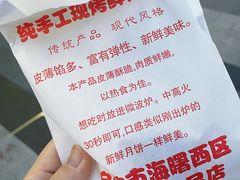 纯手工现烤鲜
传统产品 现代风格
皮薄馅多、富有弹性、新鲜美味。
本产品皮薄酥脆,肉质鲜嫩,
以热食为佳。
想吃时放进微波炉。中高火
30秒即可,口感类似刚出炉的
新鲜月饼一样鲜美。
市海曙西区
品店